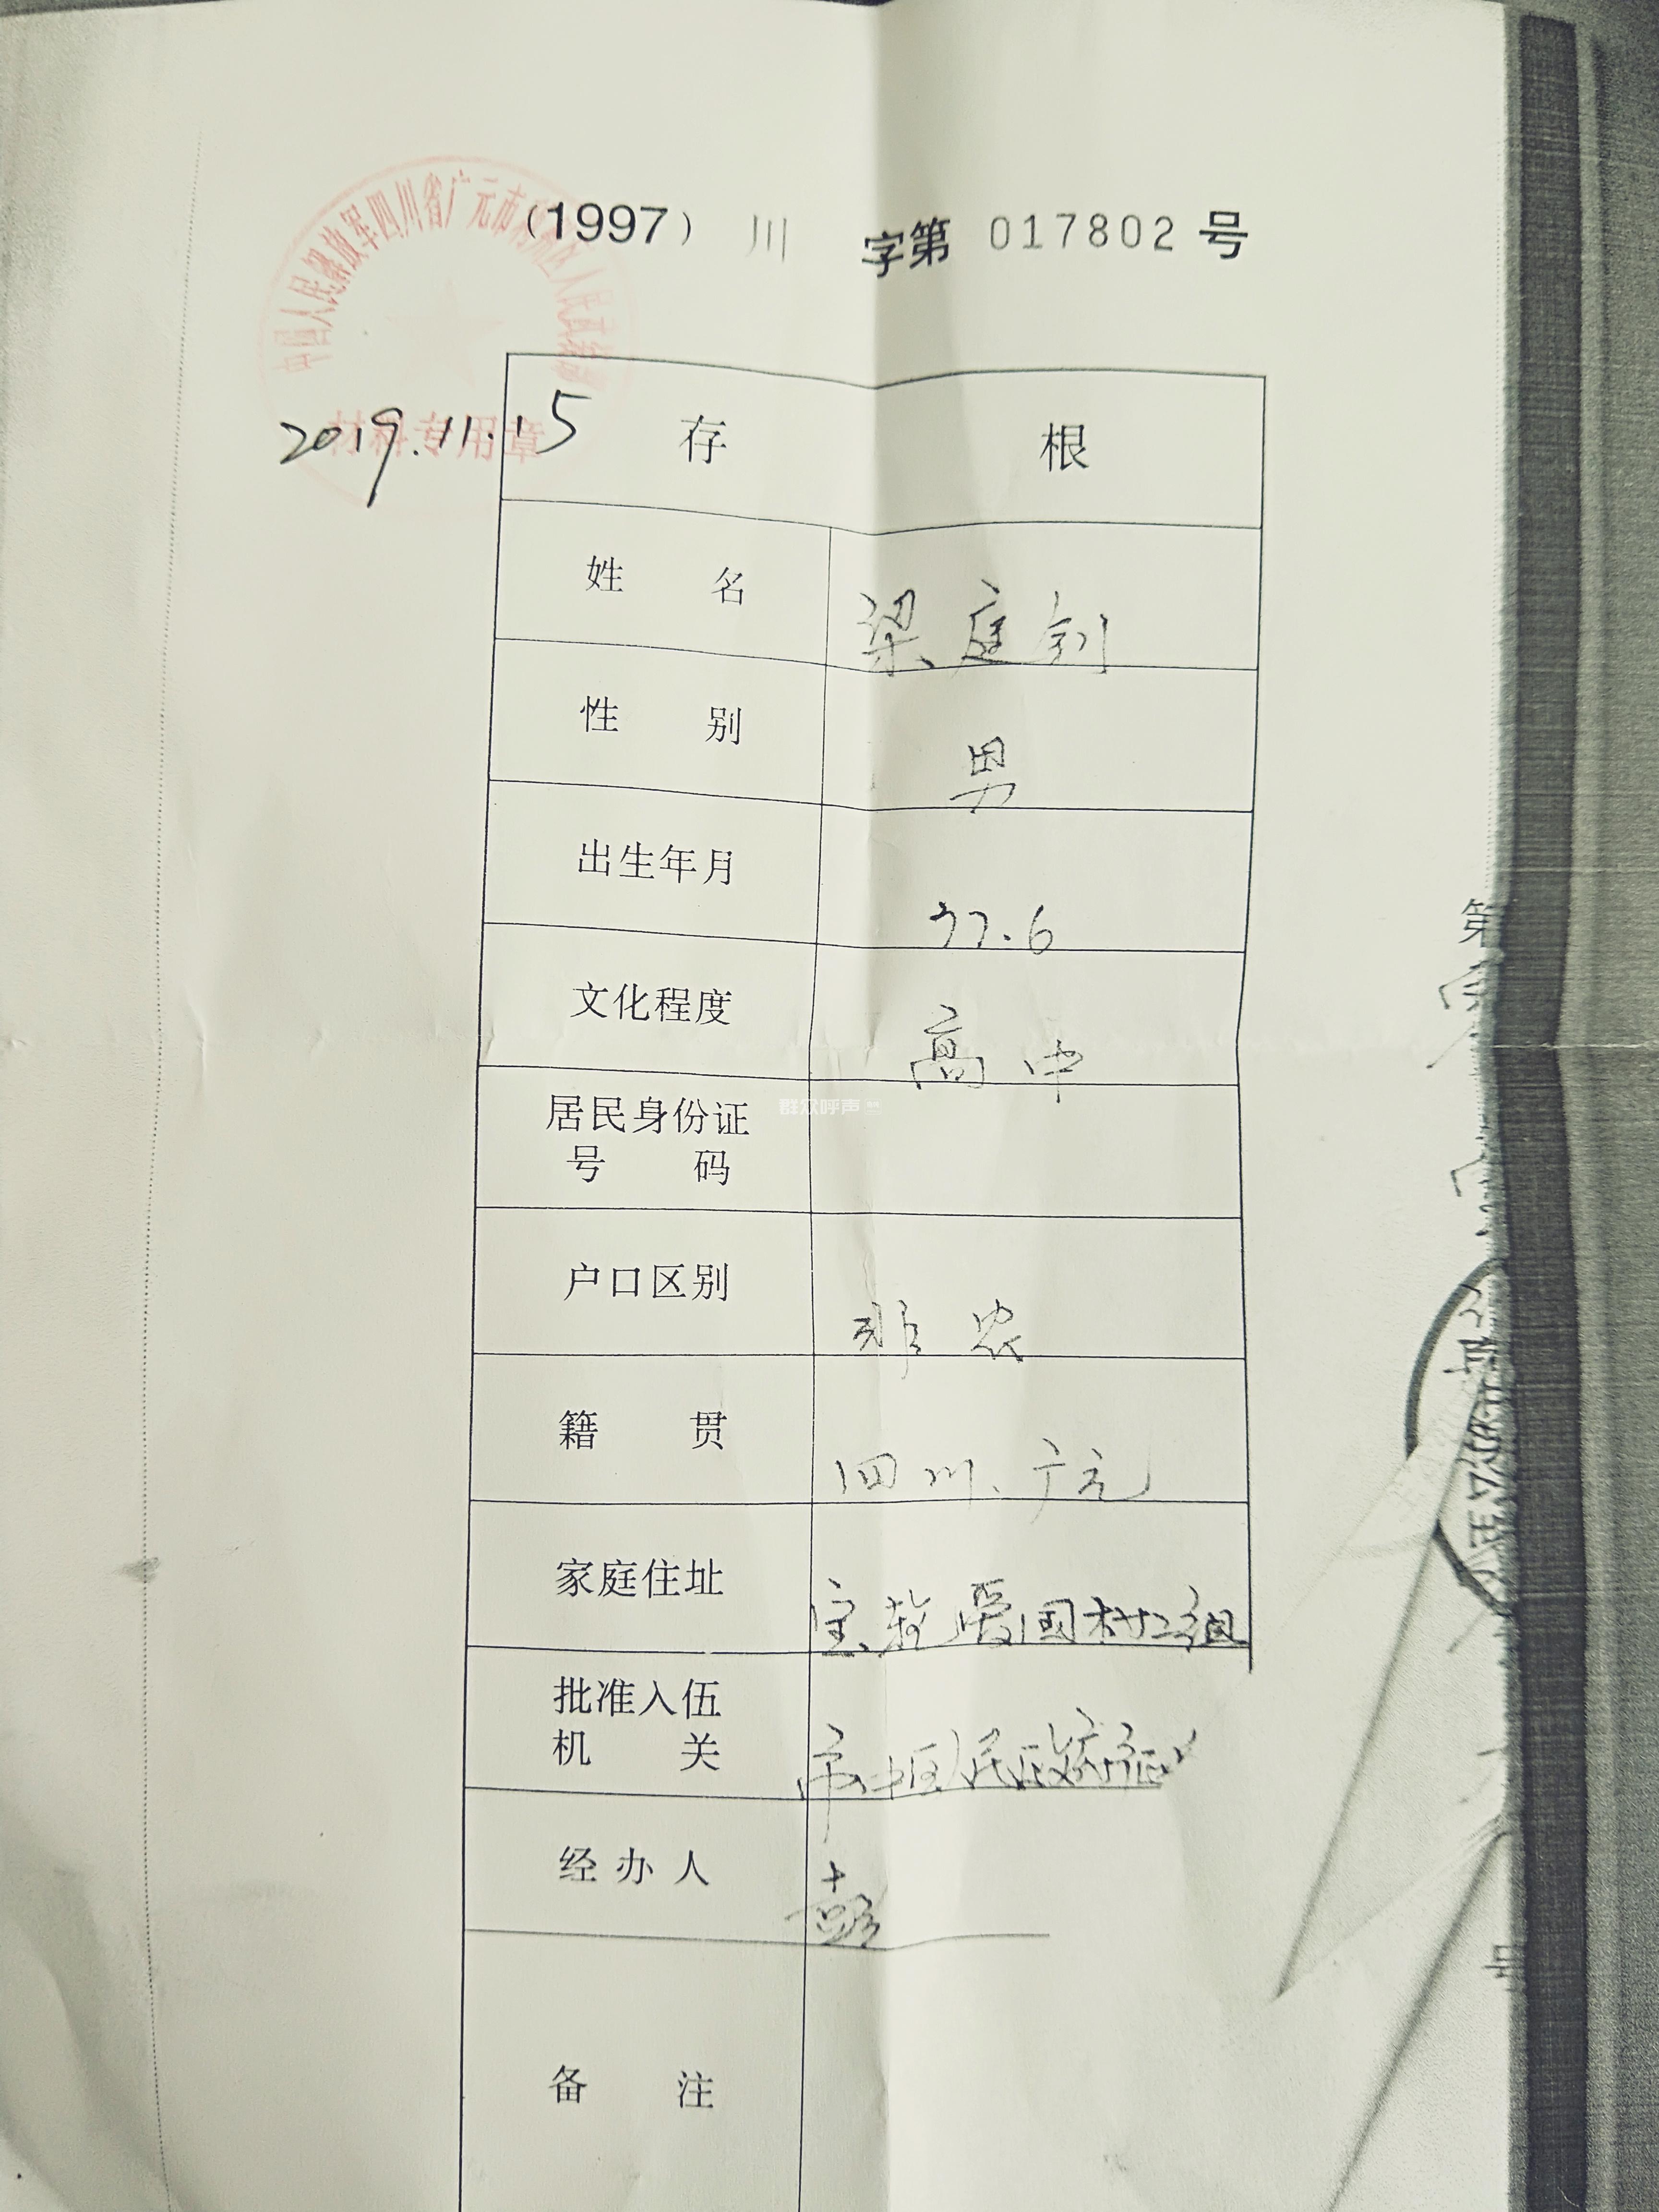 中国人民解放军四川省广元市利州区人民武装部
(1997) 川 字第 017802 号
材料专用章
2019.11.15
存 根
姓 名 梁庭钊
性 别 男
出生年月 77.6
文化程度 高中
居民身份证
号 码
群众呼声
户口区别 非农
籍 贯 四川、广元
家庭住址 宝轮爱国村二组
批准入伍
机 关 市中区人民政府征
经办人 彭
备 注
第
号